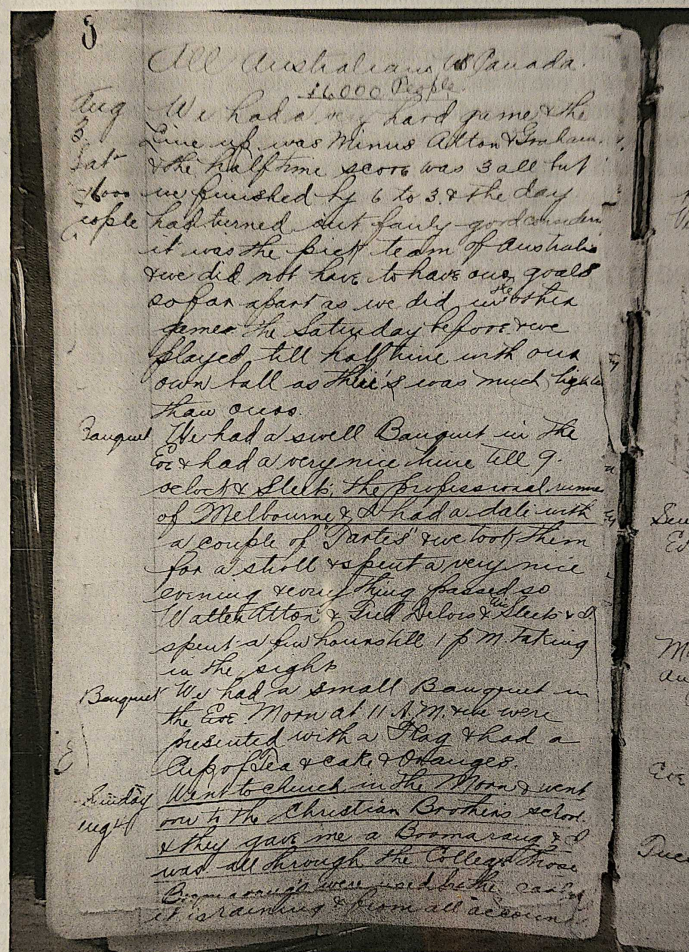 All Australians Vs Canada.
16000 People
Aug We had a very hard game & the
3 Line up was Minus Alton & Graham.
Sat & the half time score was 3 all but
16000 we finished by 6 to 3. & the day
People had turned out fairly good consider
it was the pick team of Australi
& we did not have to have our goals
so far apart as we did in the other
games the Saturday before & we
played till half time with our
own ball as their's was much light
than ours.
Banquet We had a swell Banquet in the
Eve & had a very nice time till 9.
oclock & Sleeb, the professional runne
of Melbourne & I had a date with
a couple of 'Tartes' & we took them
for a stroll & spent a very nice
evening & every thing passed so
Walter Alton & Fred & Sleeb & I
spent a few hours till 1 p M. taking
in the sight
Banquet We had a small Banquet in
the Eve Morn at 11 A.M. & we were
presented with a Flag & had a
Cup of Tea & cake & Oranges.
Sunday Went to church in the Morn & went
Aug 4 out to the Christian Brothers school
& they gave me a Boomarang & I
was all through the College Those
Boomarangs were used by the
it is raining & from all account